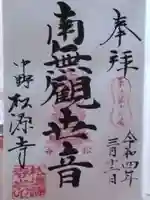 奉拝
令和四年
三月十二日
南無觀世音
中野
松源寺